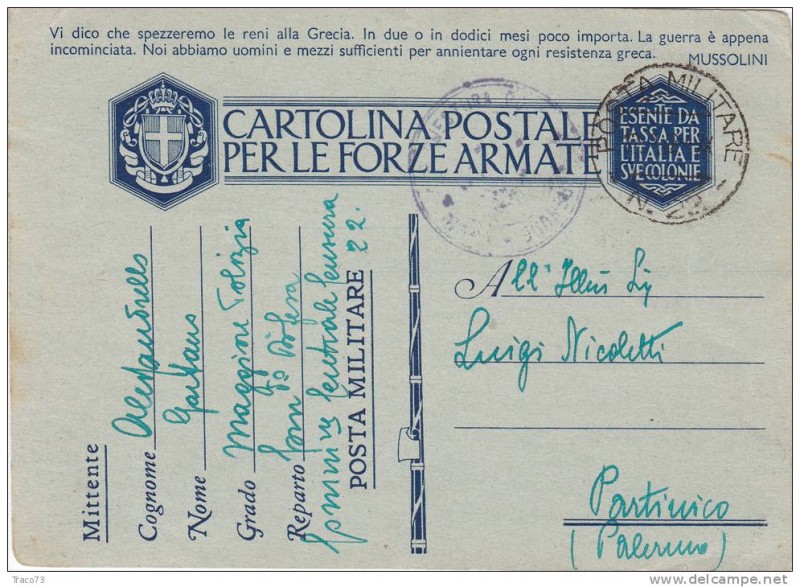 Vi dico che spezzeremo le reni alla Grecia. In due o in dodici mesi poco importa. La guerra è appena
incominciata. Noi abbiamo uomini e mezzi sufficienti per annientare ogni resistenza greca. MUSSOLINI
CARTOLINA POSTALE
PER LE FORZE ARMATE
ESENTE DA
TASSA PER
L'ITALIA E
SVE COLONIE
POSTA MILITARE
N. 22
All' Illus Sig
Luigi Nicoletti
Partinico
(Palermo)
Mittente
Cognome Alessandrello
Nome Gaetano
Grado Maggiore Polizia
Reparto
Centrale Censura
POSTA MILITARE 22.
Traco73
www.delcampe.net